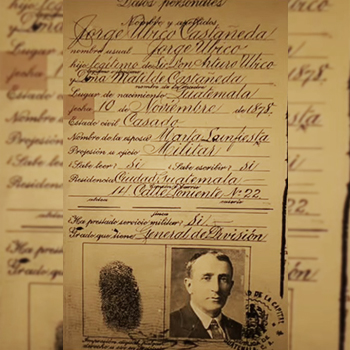 Datos personales
Nombre y apellidos
Jorge Ubico Castañeda
nombre usual Jorge Ubico
hijo legitimo de Don Arturo Ubico
Ana Matilde Castañeda
Lugar de nacimiento Guatemala
fecha 10 de Noviembre de 1878.
Estado civil Casado
Nombre de la esposa Marta Lainfiesta
Profesión u oficio Militar
¿Sabe leer? Si ¿Sabe escribir? Si
Residencia Ciudad Guatemala
Calle Poniente Nº 22
¿Ha prestado servicio militar? Si
Grado que tiene General de División
DE LA CAPITAL